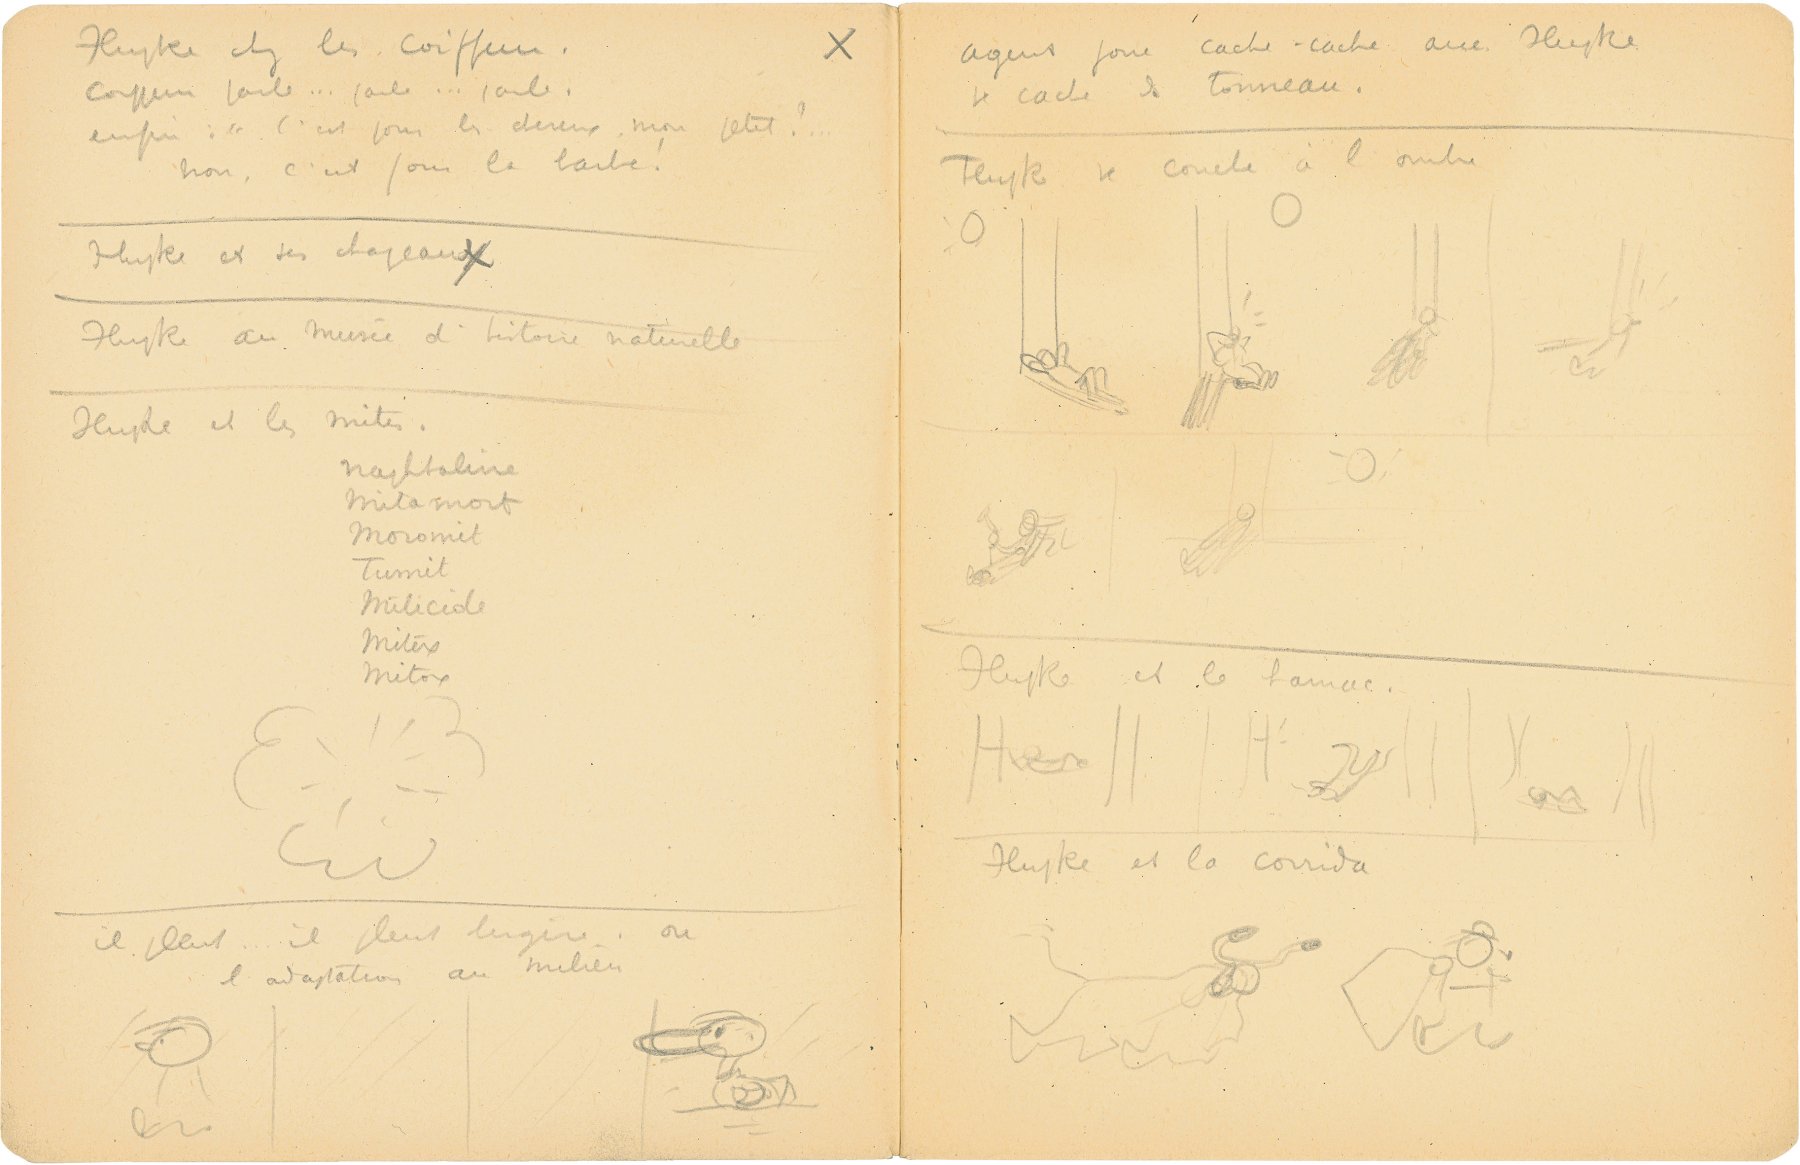 Flupke chez les coiffeurs.
coiffeur parle... parle... parle.
enfin : " C'est pour les cheveux, mon petit?...
non, c'est pour la barbe!
X
Flupke et ses chapeaux
X
Flupke au musée d'histoire naturelle
Flupke et les mites.
naphtaline
Mitamort
Moromit
Tumit
Miticide
Mitex
Mitox
il pleut... il pleut bergère. ou
l'adaptation au milieu
agent joue cache-cache avec Flupke
se cache ds tonneau.
Flupke se couche à l'ombre
Flupke et le hamac.
Flupke et la corrida